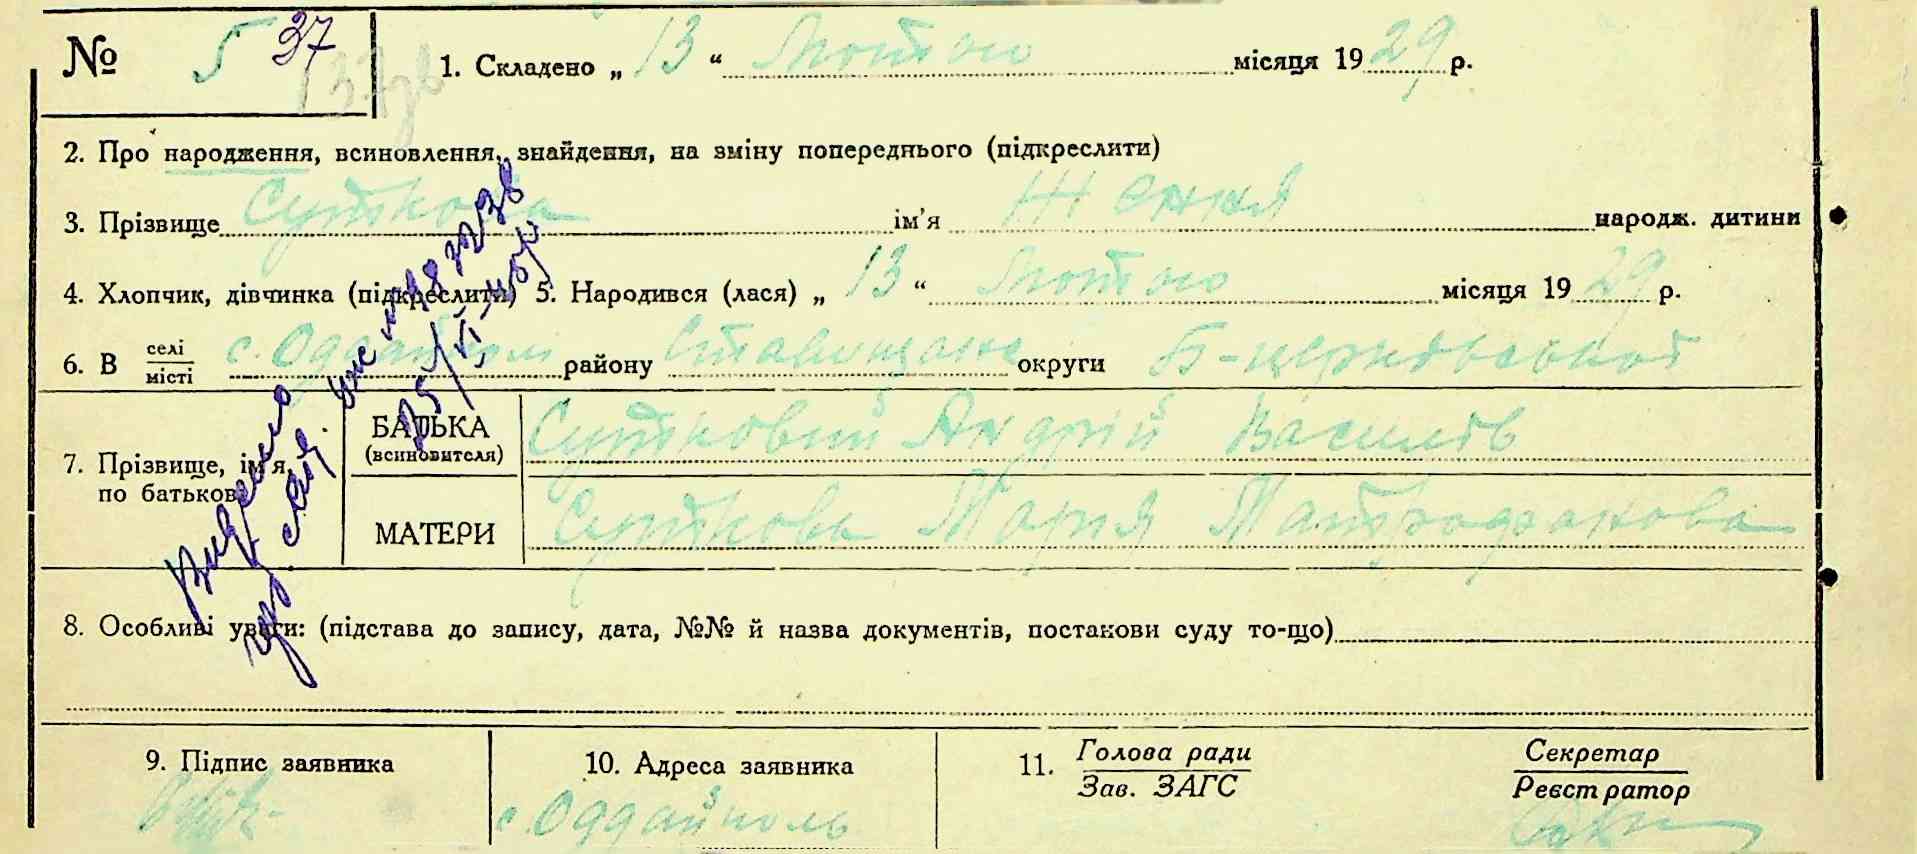 № 5 37
137зв
1. Складено „ 13 “ Лютого місяця 1929 р.
2. Про народження, всиновлення, знайдення, на зміну попереднього (підкреслити)
3. Прізвище Суткова ім’я Женя народж. дитини
4. Хлопчик, дівчинка (підкреслити) 5. Народився (лася) „ 13 “ Лютого місяця 1929 р.
6. В селі місті с. Оддайполь району Ставищане округи Б-церківської
7. Прізвище, ім’я, по батькові
БАТЬКА (всиновителя) Сутковий Андрій Василів
МАТЕРИ Суткова Мария Матрофанова
8. Особливі уваги: (підстава до запису, дата, №№ й назва документів, постанови суду то-що)
9. Підпис заявника
10. Адреса заявника
с. Оддайполь
11. Голова ради Зав. ЗАГС
Секретар Реєстратор